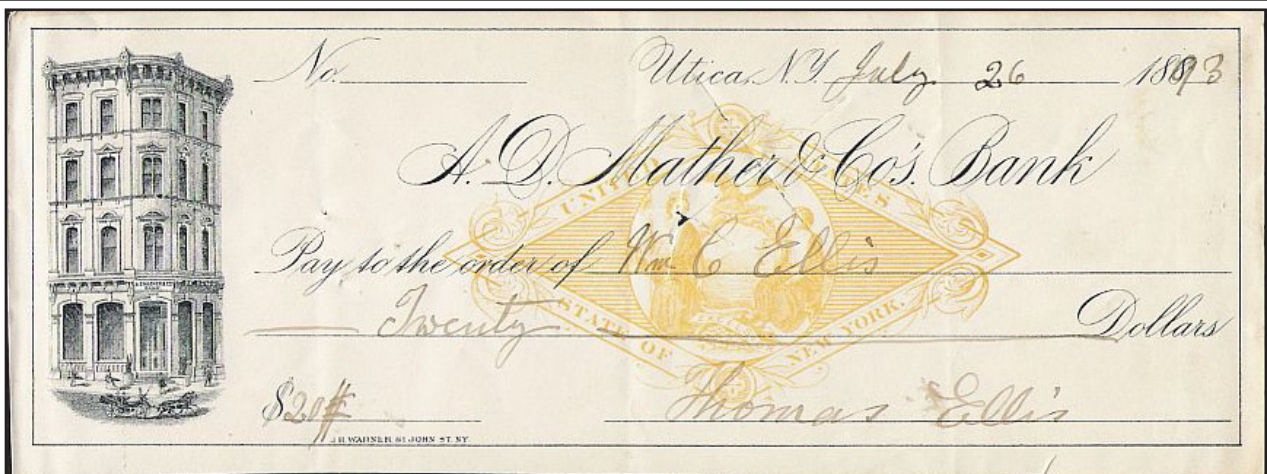 No. Utica, N.Y. July 26 1893
A. D. Mather & Co's. Bank
UNITED STATES
Pay to the order of Wm C Ellis
Twenty Dollars
STATE OF NEW YORK.
$20 Thomas Ellis
JOHN ST. NY